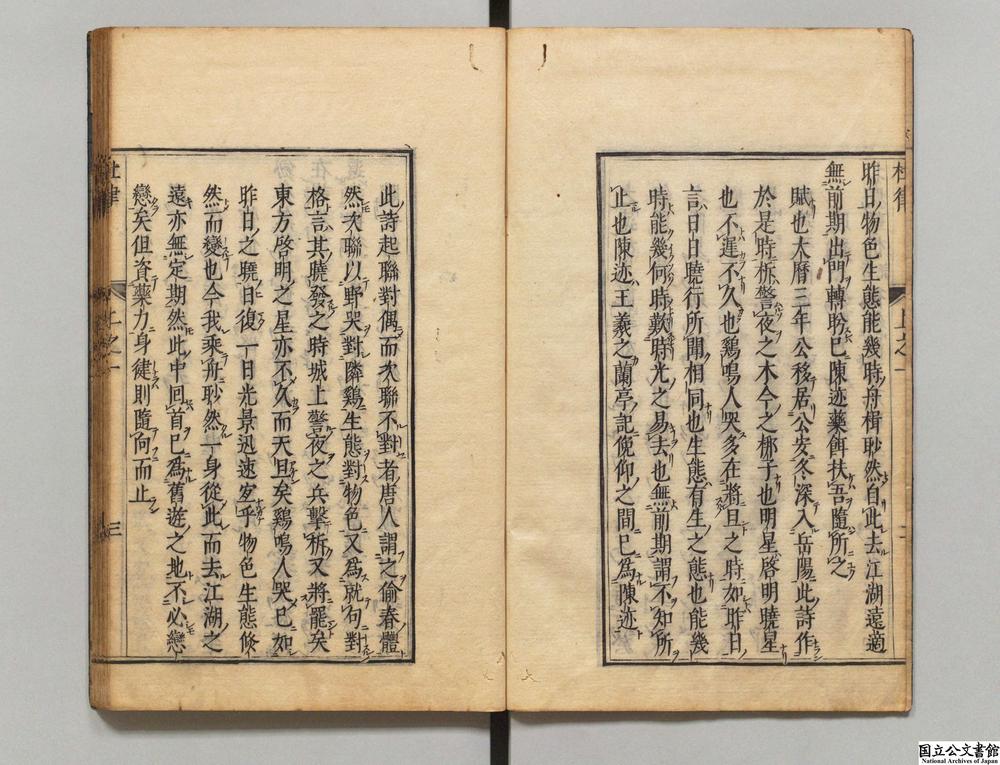 昨日物色生態能幾時舟楫眇然自此去江湖遠適
無前期出門轉眄已陳迹藥餌扶吾隨所之
賦也大曆三年公移居公安冬深入岳陽此詩作
於是時柝警夜之木今之梆子也明星啓明曉星
也不遲不久也鷄鳴人哭多在將旦之時如昨日
言日日曉行所聞相同也生態有生之態也能幾
時能幾何時歎時光之易去也無前期謂不知所
止也陳迹王羲之蘭亭記俛仰之間已爲陳迹
杜律
上之一
二
此詩起聯對偶而次聯不對者唐人謂之偷春體
然次聯以野哭對隣鷄生態對物色又爲就句對
格言其曉發之時城上警夜之兵擊柝又將罷矣
東方啓明之星亦不久而天旦矣鷄鳴人哭已如
昨日之曉日復一日光景迅速宜乎物色生態倐
然而變也今我乘舟眇然一身從此而去江湖之
遠亦無定期然此中回首已爲舊遊之地不必戀
戀矣但資藥力身徒則隨向而止
杜律
上之一
三
国立公文書館
National Archives of Japan